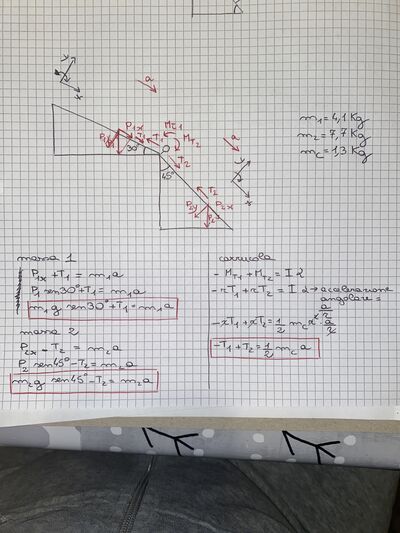 y
x
a
P1x
T1
MT1
MT2
30°
T2
a
m1 = 4,1 Kg
m2 = 7,7 Kg
mc = 1,3 Kg
y
x
45°
T2
P2y
P2x
P2
massa 1
P1x + T1 = m1a
P1 sen30° + T1 = m1a
m1g sen30° + T1 = m1a
massa 2
P2x - T2 = m2a
P2 sen45° - T2 = m2a
m2g sen45° - T2 = m2a
carrucola
- MT1 + MT2 = I α
- rT1 + rT2 = I α → accelerazione
angolare =
a/r
- rT1 + rT2 = 1/2 mc r² a/r
- T1 + T2 = 1/2 mc a